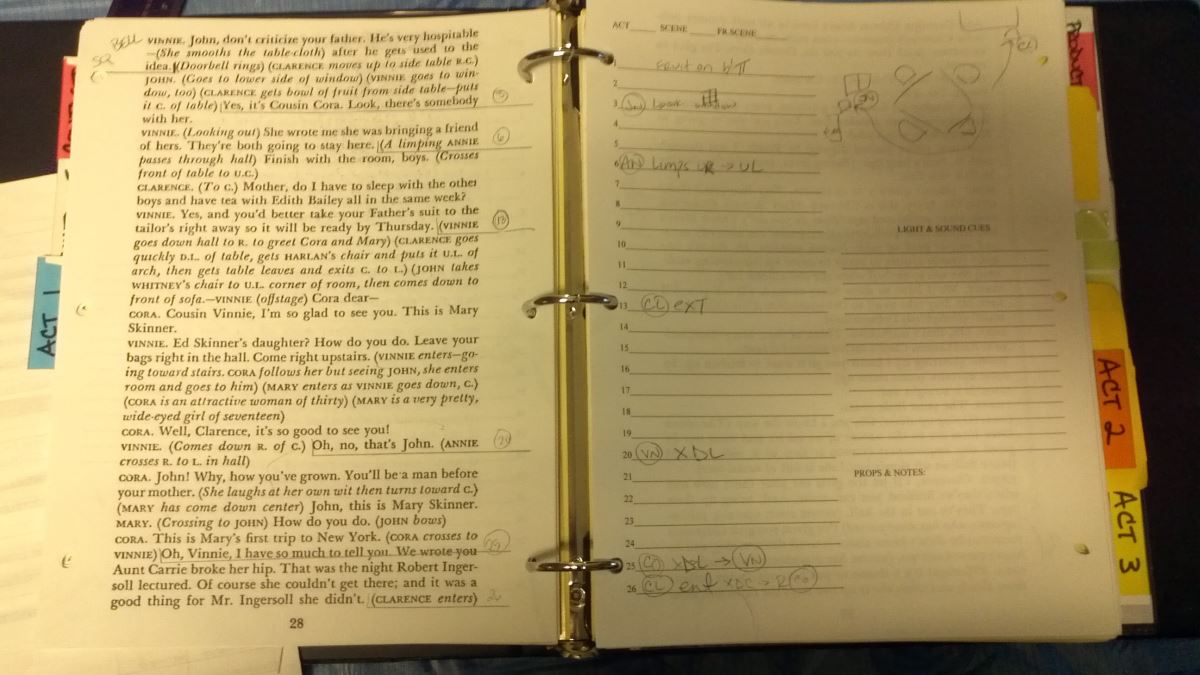 BELL
SQ
VINNIE. John, don't criticize your father. He's very hospitable
—(She smooths the table-cloth) after he gets used to the
idea. (Doorbell rings) (CLARENCE moves up to side table R.C.)
JOHN. (Goes to lower side of window) (VINNIE goes to win-
dow, too) (CLARENCE gets bowl of fruit from side table—puts
it C. of table) Yes, it's Cousin Cora. Look, there's somebody
with her.
VINNIE. (Looking out) She wrote me she was bringing a friend
of hers. They're both going to stay here. (A limping ANNIE
6
passes through hall) Finish with the room, boys. (Crosses
front of table to U.C.)
CLARENCE. (To C.) Mother, do I have to sleep with the other
boys and have tea with Edith Bailey all in the same week?
VINNIE. Yes, and you'd better take your Father's suit to the
tailor's right away so it will be ready by Thursday. (VINNIE
13
goes down hall to R. to greet Cora and Mary) (CLARENCE goes
quickly D.L. of table, gets HARLAN'S chair and puts it U.L. of
arch, then gets table leaves and exits C. to L.) (JOHN takes
WHITNEY'S chair to U.L. corner of room, then comes down to
front of sofa.—VINNIE (offstage) Cora dear—
CORA. Cousin Vinnie, I'm so glad to see you. This is Mary
Skinner.
VINNIE. Ed Skinner's daughter? How do you do. Leave your
bags right in the hall. Come right upstairs. (VINNIE enters—go-
ing toward stairs. CORA follows her but seeing JOHN, she enters
room and goes to him) (MARY enters as VINNIE goes down, C.)
(CORA is an attractive woman of thirty) (MARY is a very pretty,
wide-eyed girl of seventeen)
CORA. Well, Clarence, it's so good to see you!
VINNIE. (Comes down R. of C.) Oh, no, that's John. (ANNIE
crosses R. to L. in hall)
CORA. John! Why, how you've grown. You'll be a man before
your mother. (She laughs at her own wit then turns toward C.)
(MARY has come down center) John, this is Mary Skinner.
MARY. (Crossing to JOHN) How do you do. (JOHN bows)
CORA. This is Mary's first trip to New York. (CORA crosses to
VINNIE) Oh, Vinnie, I have so much to tell you. We wrote you
Aunt Carrie broke her hip. That was the night Robert Inger-
soll lectured. Of course she couldn't get there; and it was a
good thing for Mr. Ingersoll she didn't. (CLARENCE enters)
28
ACT 1
ACT SCENE FR.SCENE
1
Fruit on
2
3 JN Look window
4
5
6 AN Limps UR → UL
7
8
9
10
11
12
13 CL EXT
14
15
16
17
18
19
20 VN X DL
21
22
23
24
25 CO X DSL → VN
26 CL ent X DC → R CO
CL
LIGHT & SOUND CUES
PROPS & NOTES:
ACT 2
ACT 3